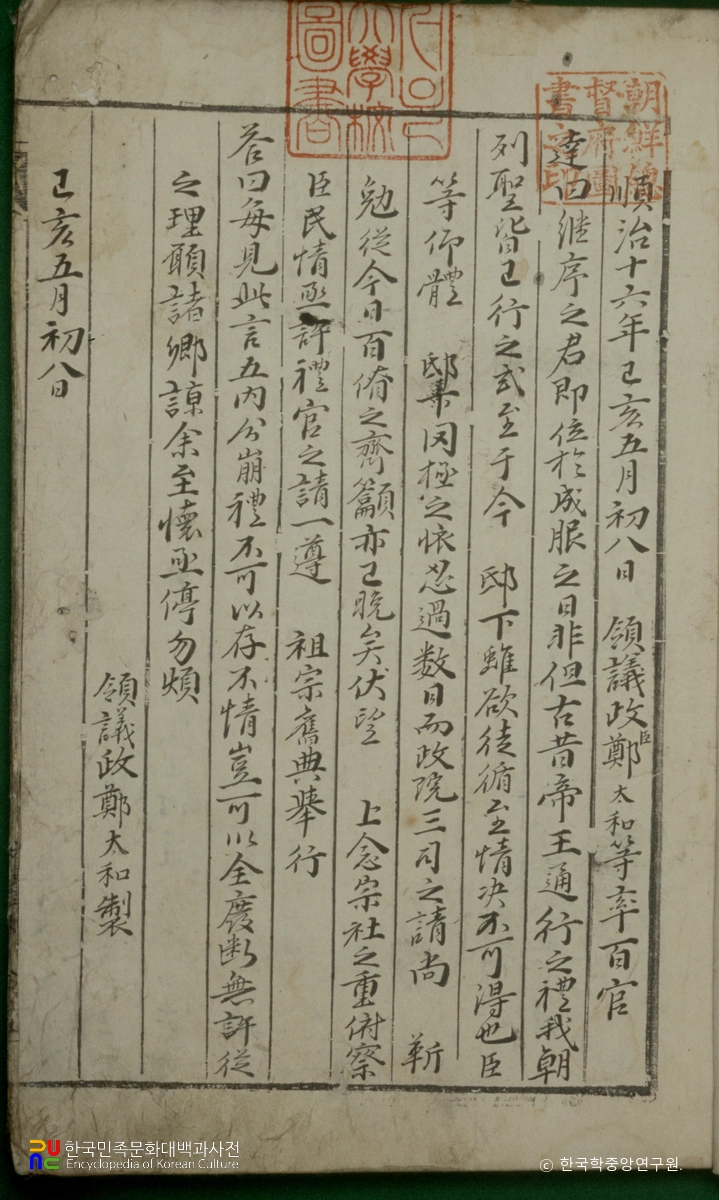 順治十六年己亥五月初八日 領議政臣鄭太和等率百官
達曰繼序之君即位於成服之日非但古昔帝王通行之禮我朝
列聖皆已行之式至于今 邸下雖欲徒循至情决不可得也臣
等仰體 邸下罔極之懷忍過数日而政院三司之請尚 靳
勉從今日百僚之齊籲亦已晚矣伏望 上念宗社之重俯察
臣民情亟許禮官之請一遵 祖宗舊典擧行
答曰每見此言五內分崩禮不可以存不情豈可以全廢断無許從
之理願諸卿諒余至懷亟停勿煩
領議政鄭太和製
己亥五月初八日
朝鮮總
督府圖
書之印
大學校
圖書
한국민족문화대백과사전
Encyclopedia of Korean Culture
© 한국학중앙연구원.